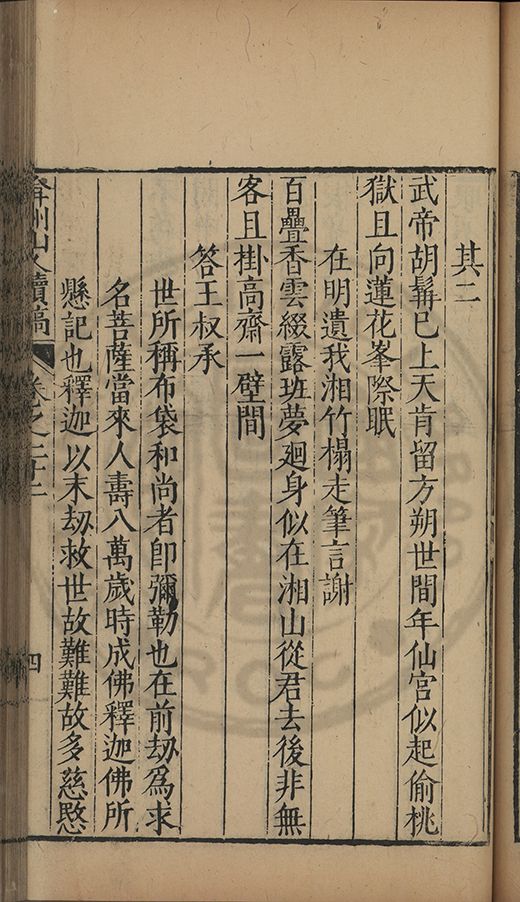 其二
武帝胡髯已上天肯留方朔世間年仙宮似起偷桃
獄且向蓮花峯際眠
在明遺我湘竹榻走筆言謝
百疊香雲綴露班夢廻身似在湘山從君去後非無
客且掛高齋一壁間
答王叔承
世所稱布袋和尚者卽彌勒也在前刼爲求
名菩薩當來人壽八萬歲時成佛釋迦佛所
懸記也釋迦以末刼救世故難難故多慈愍
弇州山人續稿
卷之二十二
四